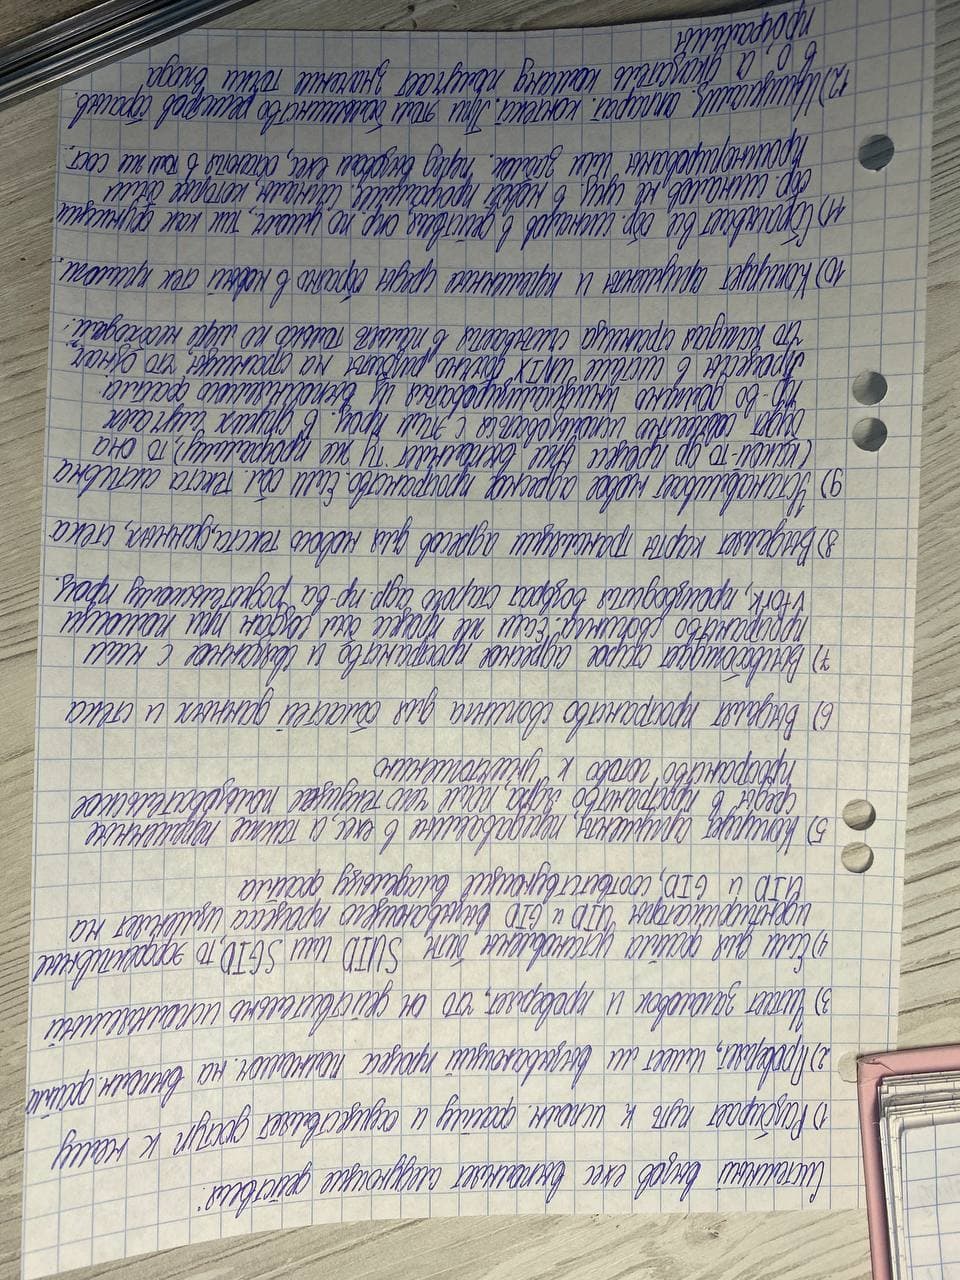 Системный вызов exec выполняет следующие действия:
1) Разбирает путь к исполн. файлу и осуществляет доступ к нему
2) Проверяет, имеет ли вызывающий процесс полномоч. на выполн. файла
3) Читает заголовок и проверяет, что он действительно исполняемый
4) Если для файла установлены биты SUID или SGID, то эффективные
идентификаторы UID и GID вызывающего процесса изменяет на
UID и GID, соответствующие владельцу файла
5) Копирует аргументы, передаваемые в exec, а также переменные
среды в пространство ядра, после чего текущее пользовательское
пространство готово к уничтожению
6) Выделят пространство свопинга для областей данных и стека
7) Высвобождает старое адресное пространство и связанное с ним
пространство свопинга. Если же процесс был создан при помощи
vfork, производится возврат старого адр. пр-ва родительскому проц.
8) Выделяет карты трансляции адресов для нового текста, данных, стека
9) Устанавливает новое адресное пространство. Если обл. текста активна
(какой-то др процесс уже выполняет ту же программу), то она
будет совместно использоваться с этим проц. В других случаях
пр-во должно инициализироваться из выполняемого файла.
Процессы в системе UNIX обычно разбиты на страницы, что означ.,
что каждая страница считывается в память только по мере необходим.
10) Копирует аргументы и переменные среды обратно в новый стек прилож.
11) Сбрасывает все обр. сигналов в действия, опр. по умолч., так как функции
обр. сигналов не сущ. в новой программе. Сигналы, которые были
проигнорированы или заблок. перед вызовом exec, остаются в том же сост.
12) Инициализ. аппарат. контекст. При этом большинство регистров сбрасыв.
в 0, а указатель команд получает значение точки входа
программы